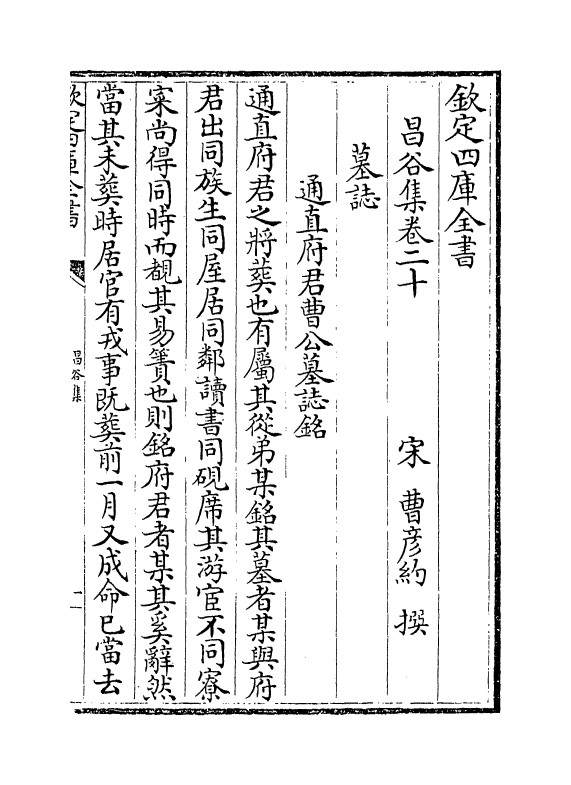 欽定四庫全書
昌谷集卷二十
宋 曹彥約 撰
墓誌
通直府君曹公墓誌銘
通直府君之將葬也有屬其從弟某銘其墓者某與府
君出同族生同屋居同鄰讀書同硯席其游宦不同寮
寀尚得同時而覩其易簀也則銘府君者某其奚辭然
當其未葬時居官有戎事既葬前一月又成命已當去
欽定四庫全書
昌谷集